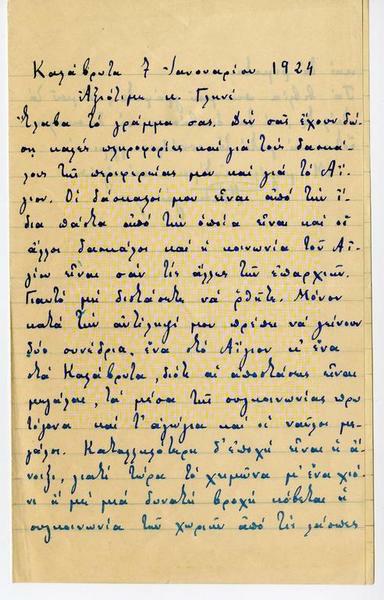 Καλάβρυτα 7 Ιανουαρίου 1924
Αξιότιμε κ. Γληνέ
Έλαβα το γράμμα σας. Δεν σας έχουν δώ-
ση καλές πληροφορίες και γιά τους δασκά-
λους της περιφερείας μου και γιά το Αί-
γιον. Οι δάσκαλοί μου είναι από την ί-
δια πάστα από την οποία είναι και οι
άλλοι δασκάλοι και η κοινωνία του Αι-
γίου είναι σαν τις άλλες των επαρχιών.
Γιαυτό μη διστάσετε νά ρθήτε. Μόνον
κατά την αντίληψί μου πρέπει νά γείνουν
δύο συνέδρια, ένα στό Αίγιον κ' ένα
στά Καλάβρυτα, διότι αι αποστάσεις είναι
μεγάλαι, τά μέσα της συγκοινωνίας πρω
τόγονα και τ' αγώγια και οι ναύλοι με-
γάλοι. Καταλληλότερη δ' εποχή είναι η ά-
νοιξι, γιατί τώρα το χειμώνα μ' ένα χιό-
νι ή μέ μιά δυνατή βροχή κόβεται η
συγκοινωνία των χωριών από τις λάσπες